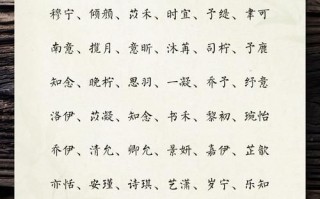 穆宁、倾颜、苡禾、时宜、予缇、聿可
南意、揽月、意昕、沐苒、司柠、予鹿
知念、晚柠、思羽、一凝、乔予、纾意
洛伊、苡凝、知念、书禾、黎初、琬怡
乔伊、清允、卿允、景妍、嘉伊、芷歆
亦恬、安瑾、诗琪、艺潇、岁宁、乐知